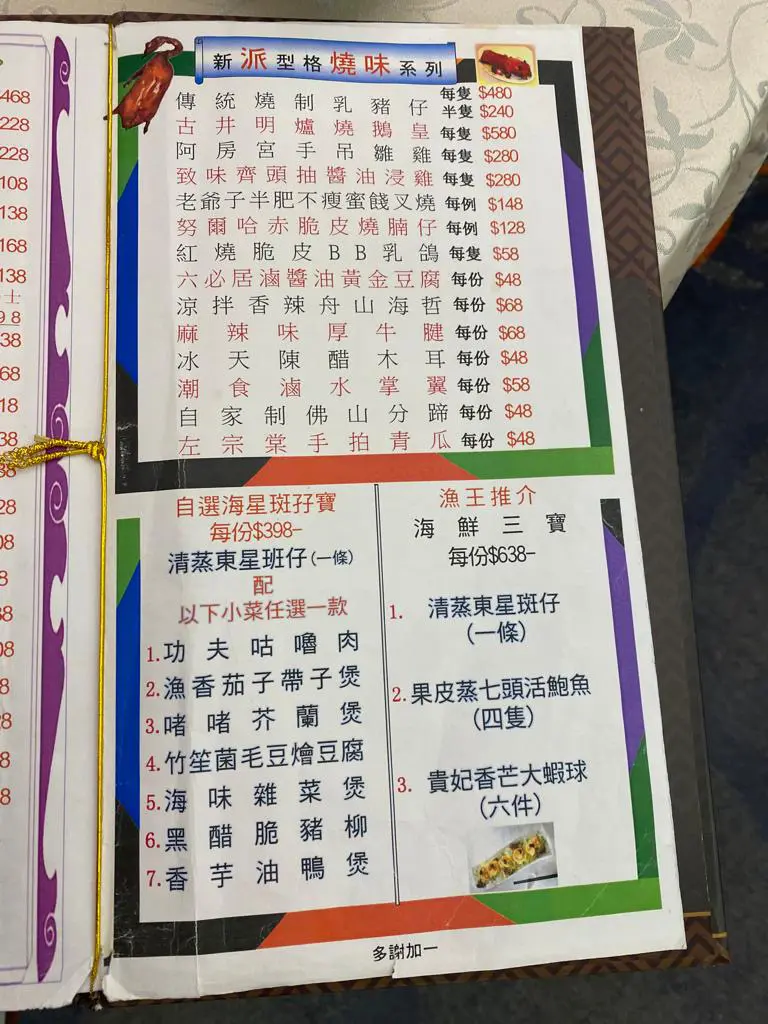 468
228
228
108
138
168
138
士
98
38
68
18
38
38
28
08
8
38
08
8
28
8
8
新派型格燒味系列
傳統燒制乳豬仔 每隻 $480
半隻 $240
古井明爐燒鵝皇 每隻 $580
阿房宮手吊雛雞 每隻 $280
致味齊頭抽醬油浸雞 每隻 $280
老爺子半肥不瘦蜜餞叉燒 每例 $148
努爾哈赤脆皮燒腩仔 每例 $128
紅燒脆皮BB乳鴿 每隻 $58
六必居滷醬油黃金豆腐 每份 $48
涼拌香辣舟山海哲 每份 $68
麻辣味厚牛腱 每份 $68
冰天陳醋木耳 每份 $48
潮食滷水掌翼 每份 $58
自家制佛山分蹄 每份 $48
左宗棠手拍青瓜 每份 $48
自選海星斑孖寶
每份$398-
清蒸東星班仔(一條)
配
以下小菜任選一款
1.功夫咕嚕肉
2.漁香茄子帶子煲
3.啫啫芥蘭煲
4.竹笙菌毛豆燴豆腐
5.海味雜菜煲
6.黑醋脆豬柳
7.香芋油鴨煲
漁王推介
海鮮三寶
每份$638-
1. 清蒸東星斑仔
(一條)
2.果皮蒸七頭活鮑魚
(四隻)
3. 貴妃香芒大蝦球
(六件)
多謝加一